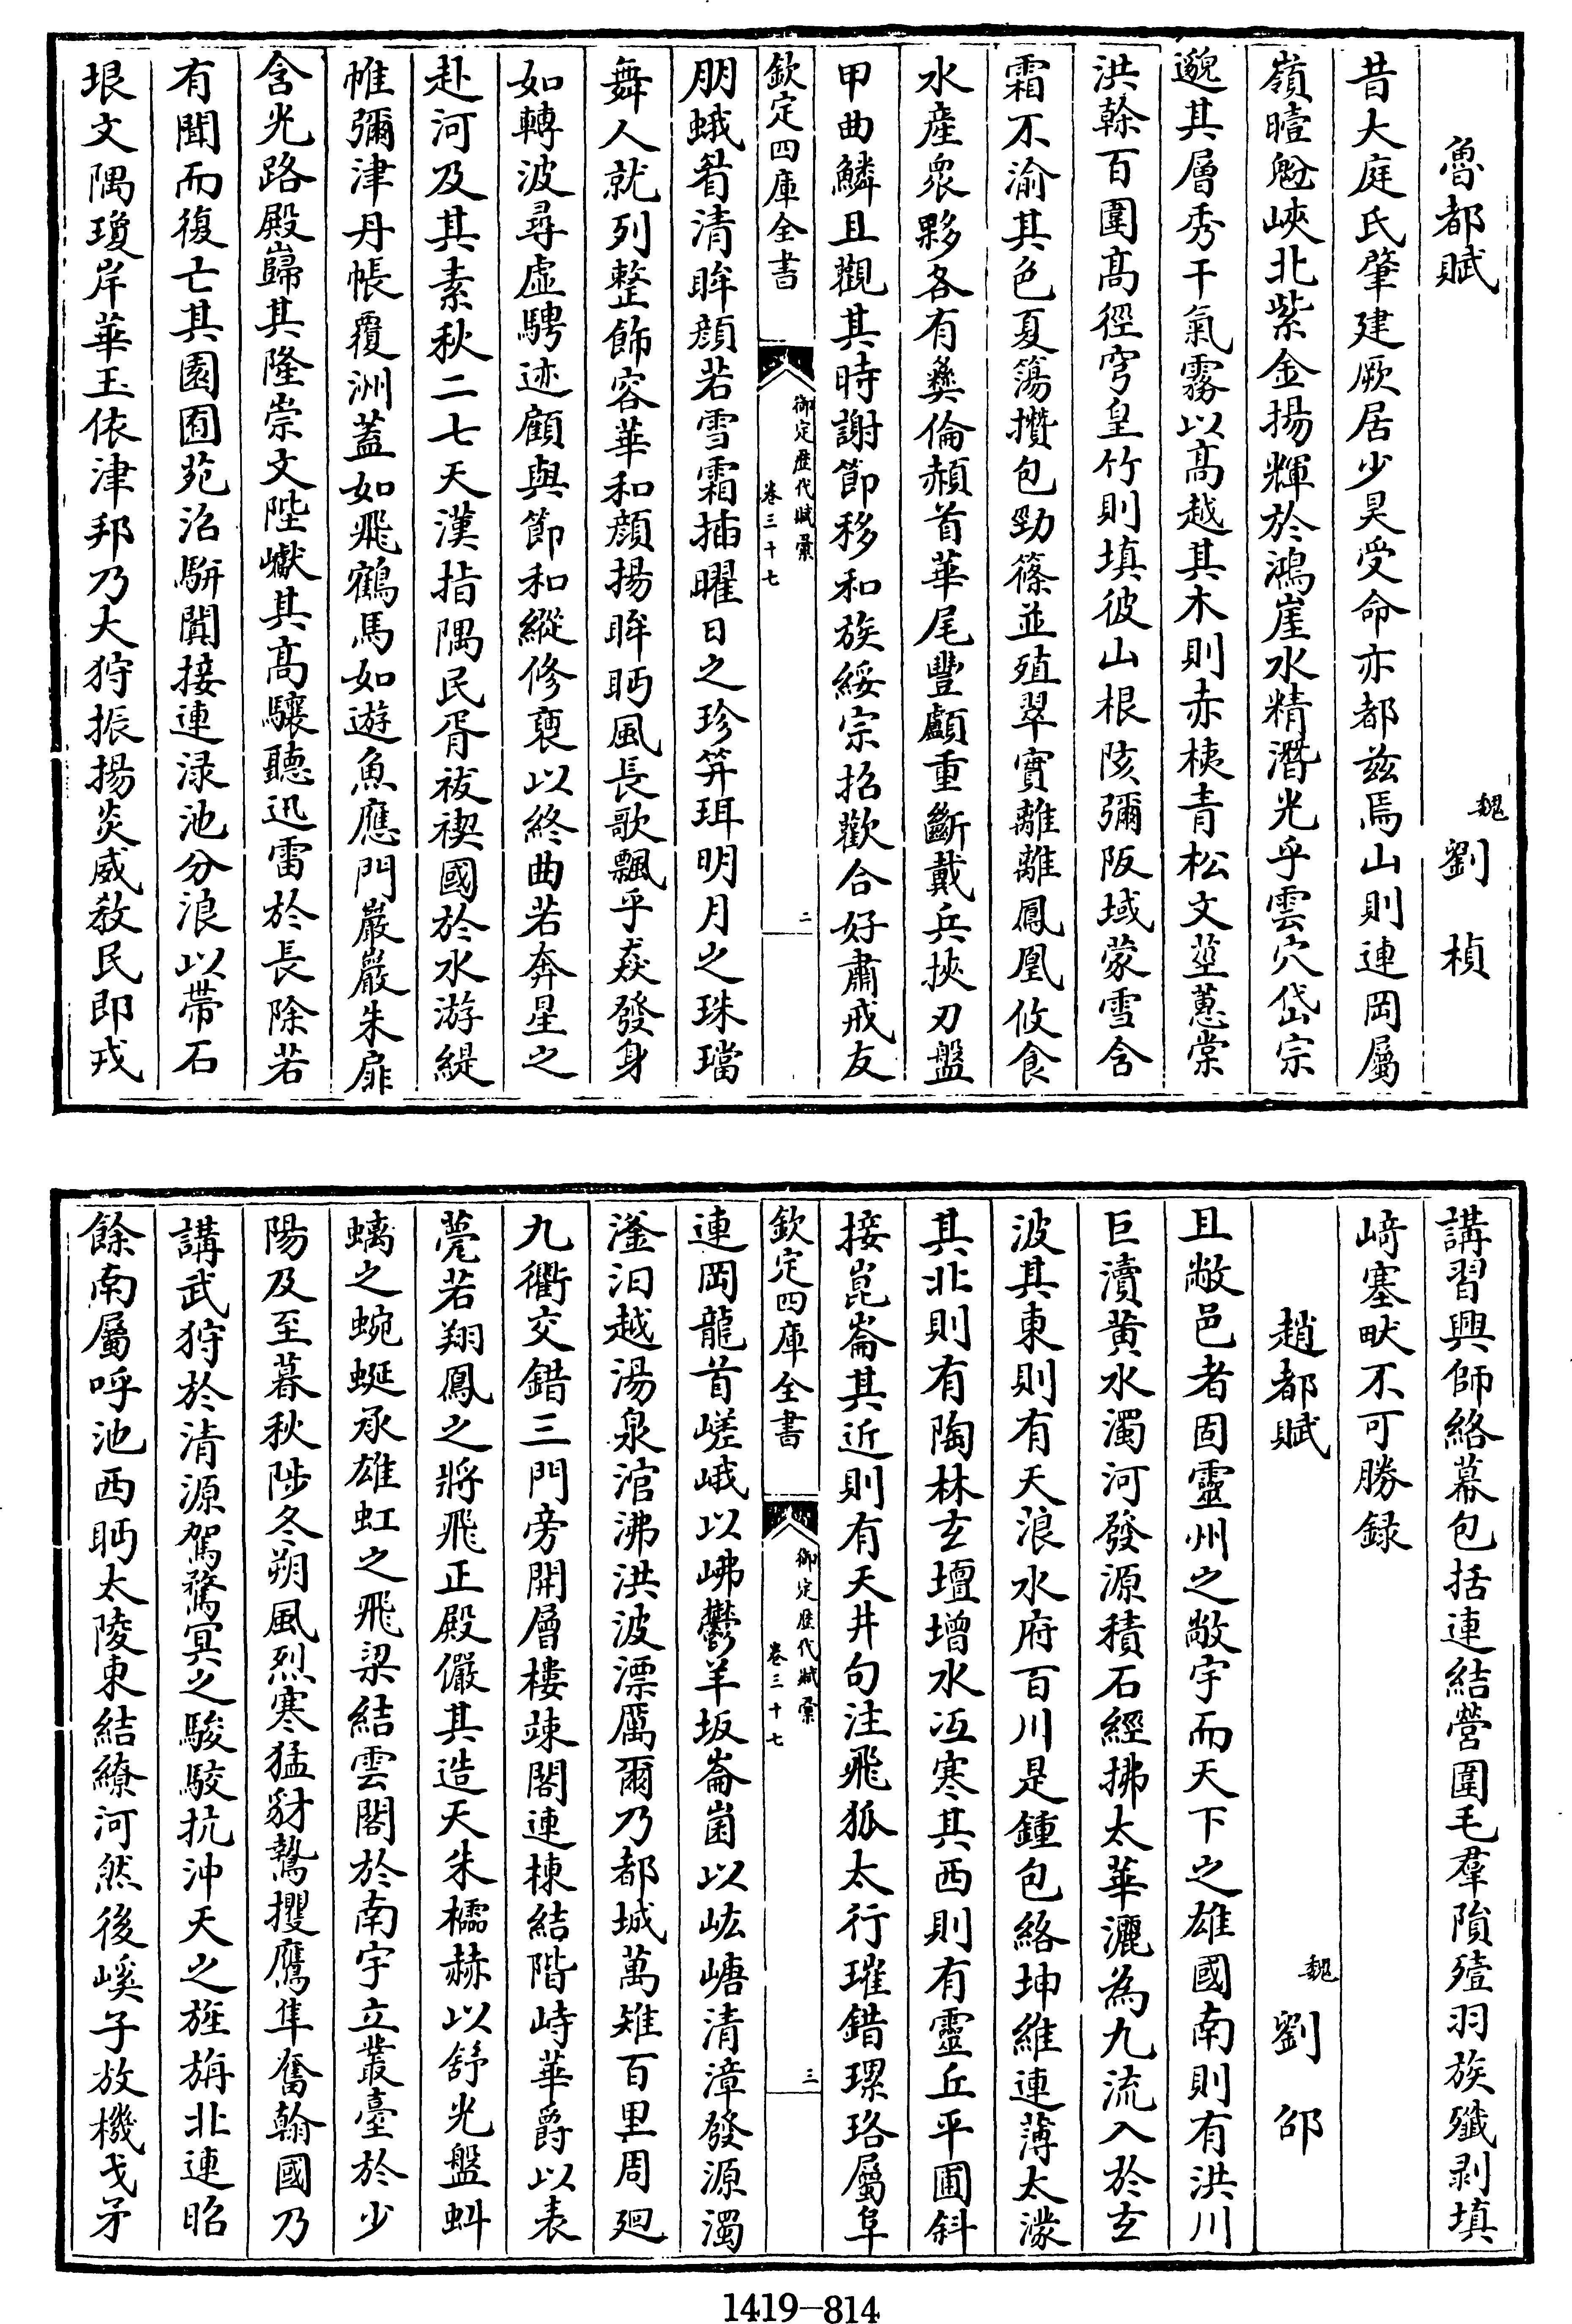 魯都賦
魏劉楨
昔大庭氏肇建厥居少昊受命亦都茲焉山則連岡屬
嶺暟魁峽北紫金揚輝於鴻崖水精潛光乎雲穴岱宗
邈其層秀干氣霧以髙越其木則赤桋青松文莖蕙棠
洪榦百圍髙徑穹皇竹則填彼山根陔彌阪域蒙雪含
霜不渝其色夏簜攢包勁篠並殖翠實離離鳳凰攸食
水產衆夥各有彜倫頳首華尾豐顱重斷戴兵挾刃盤
甲曲鱗且觀其時謝節移和族綏宗招歡合好肅戒友
欽定四庫全書
御定歴代賦彙
卷三十七
二
朋蛾眉清眸顔若雪霜插曜日之珍笄珥明月之珠璫
舞人就列整飾容華和顔揚眸眄風長歌飄乎猋發身
如轉波尋虛騁迹顧與節和縱修褎以終曲若奔星之
赴河及其素秋二七天漢指隅民胥祓禊國於水游緹
帷彌津丹帳覆洲蓋如飛鶴馬如遊魚應門巖巖朱扉
含光路殿巋其隆崇文陛巘其髙驤聽迅雷於長除若
有聞而復亡其園囿苑沼駢闐接連渌池分浪以帶石
垠文隅瓊岸華玉依津邦乃大狩振揚炎威敎民即戎
講習興師絡幕包括連結營圍毛羣隕殪羽族殲剥填
﨑塞畎不可勝録
趙都賦
魏劉邵
且敝邑者固靈州之敞宇而天下之雄國南則有洪川
巨瀆黄水濁河發源積石經拂太華灑為九流入於玄
波其東則有天浪水府百川是鍾包絡坤維連薄太濛
其北則有陶林玄壇增水冱寒其西則有靈丘平圃斜
接崑崙其近則有天井句注飛狐太行璀錯琾珞屬阜
欽定四庫全書
御定歴代賦彙
卷三十七
三
連岡龍首嵯峨以岪鬱羊坂崙崮以岤嵣清漳發源濁
滏汩越湯泉涫沸洪波漂厲爾乃都城萬雉百里周迴
九衢交錯三門旁開層樓竦閣連棟結階峙華爵以表
甍若翔鳳之將飛正殿儼其造天朱欞赫以舒光盤虯
螭之蜿蜒承雄虹之飛梁結雲閣於南宇立叢臺於少
陽及至暮秋陟冬朔風烈寒猛豺鷙攫鷹隼奮翰國乃
講武狩於清源駕騖冥之駿駮抗沖天之旌旃北連昭
餘南屬呼池西眄太陵東結繚河然後嵠子放機戈矛
1419-814